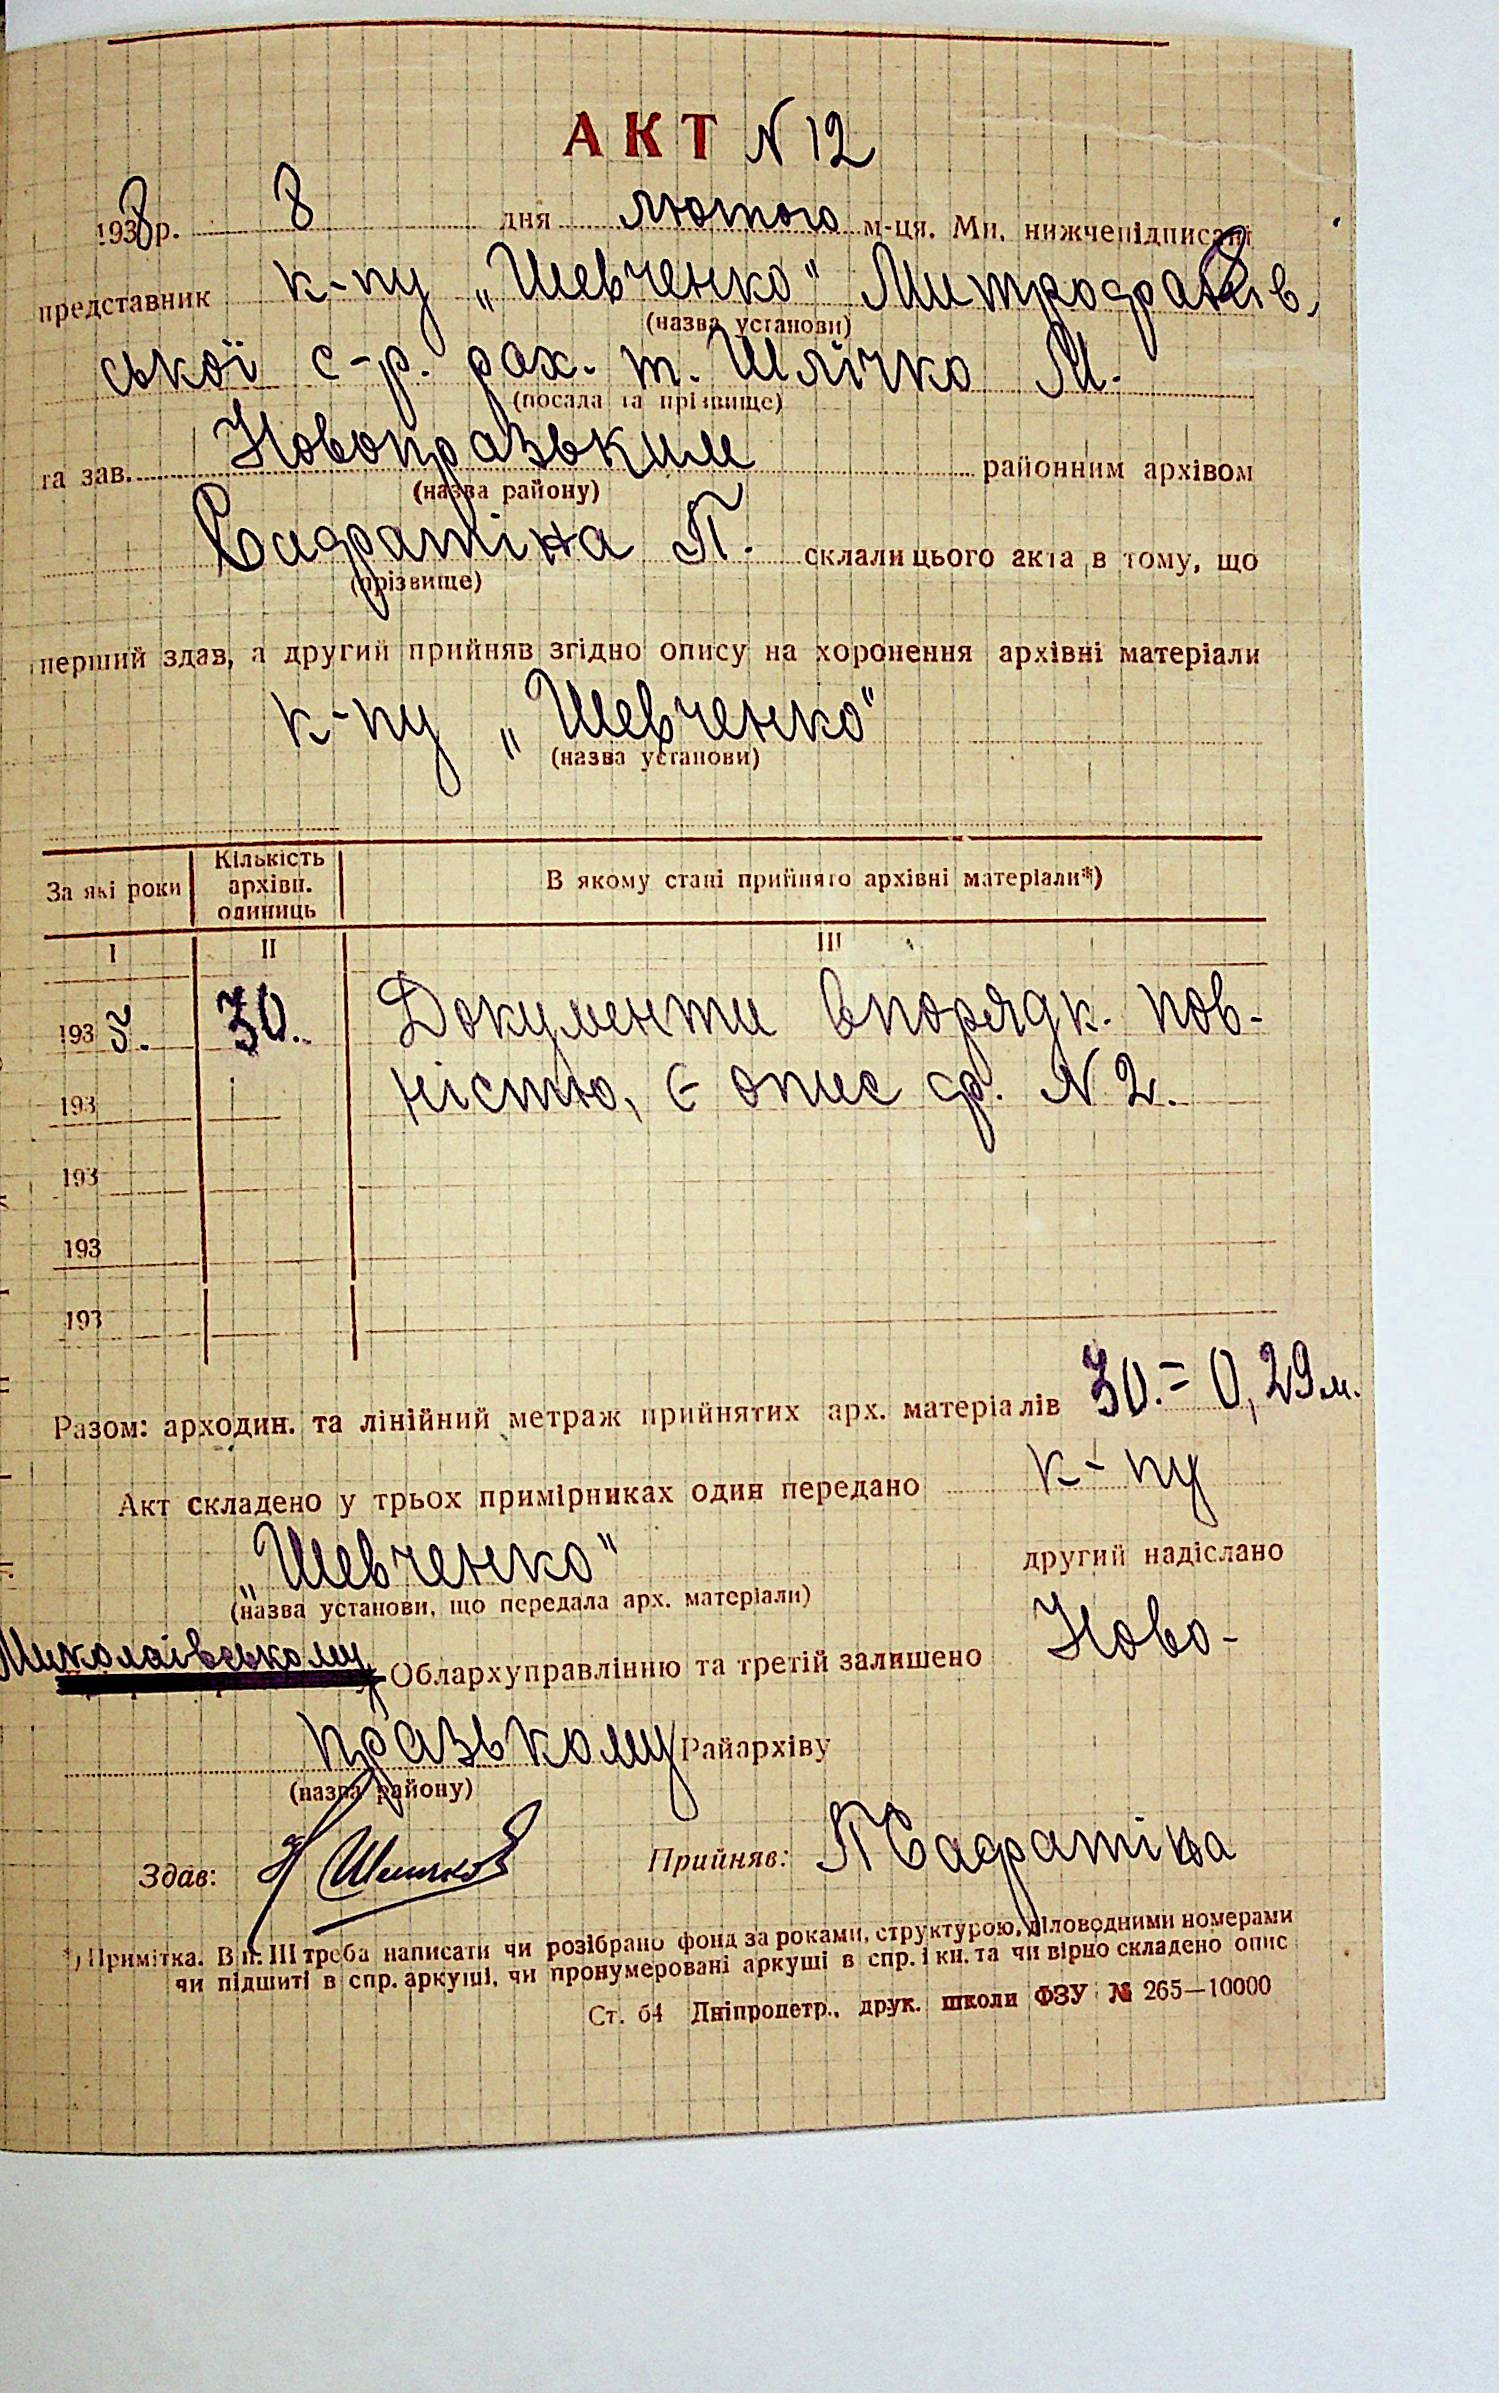 АКТ N 12
1938 р. 8 дня лютого м-ця. Ми, нижчепідписані
представник к-пу „Шевченко"
(назва установи)
ської с-р. рах. т. Шлічко М.
(посада та прізвище)
та зав. Новопразьким районним архівом
(назва району)
П. склали цього акта в тому, що
(прізвище)
перший здав, а другий прийняв згідно опису на хоронення архівні матеріали
к-пу „Шевченко"
(назва установи)
За які роки Кількість архівн. одиниць В якому стані прийнято архівні матеріали*)
I II III
193 5. 30. Документи впорядк. пов-
193 ністю, є опис ф. N 2.
193
193
193
Разом: арходин. та лінійний метраж прийнятих арх. матеріалів 30.= 0,29 м.
Акт складено у трьох примірниках один передано к-пу
„Шевченко" другий надіслано
(назва установи, що передала арх. матеріали)
Миколаївському Облархуправлінню та третій залишено Ново-
празькому Райархіву
(назва району)
Здав: Прийняв: П
*) Примітка. В п. III треба написати чи розібрано фонд за роками, структурою, діловодними номерами
чи підшиті в спр. аркуші, чи пронумеровані аркуші в спр. і кн. та чи вірно складено опис
Ст. 64 Дніпропетр., друк. школи ФЗУ № 265—10000